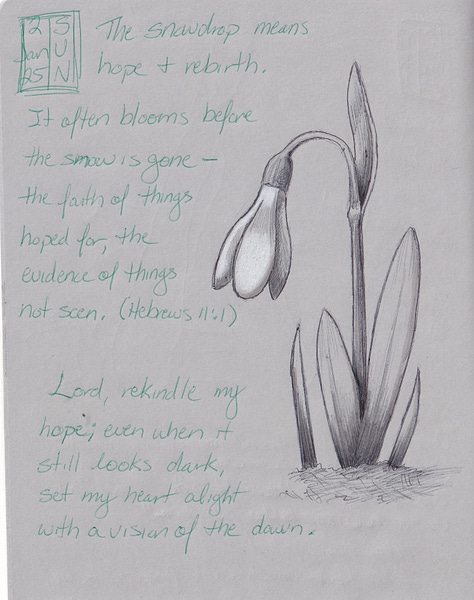 2 S
Jan U
25 N
The snowdrop means
hope + rebirth.
It often blooms before
the snow is gone –
the faith of things
hoped for, the
evidence of things
not seen. (Hebrews 11:1)
Lord, rekindle my
hope; even when it
still looks dark,
set my heart alight
with a vision of the dawn.